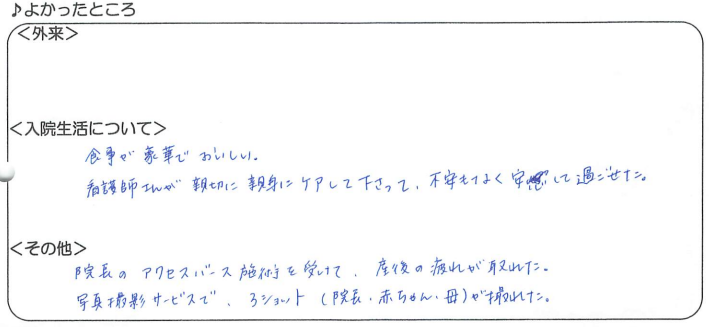 ♪よかったところ
＜外来＞
＜入院生活について＞
食事が豪華でおいしい。
看護師さんが親切に親身にケアして下さって、不安もなく安心して過ごせた。
＜その他＞
院長のアクセスバース施術を受けて、産後の疲れが取れた。
写真撮影サービスで、3ショット(院長・赤ちゃん・母)が撮れた。